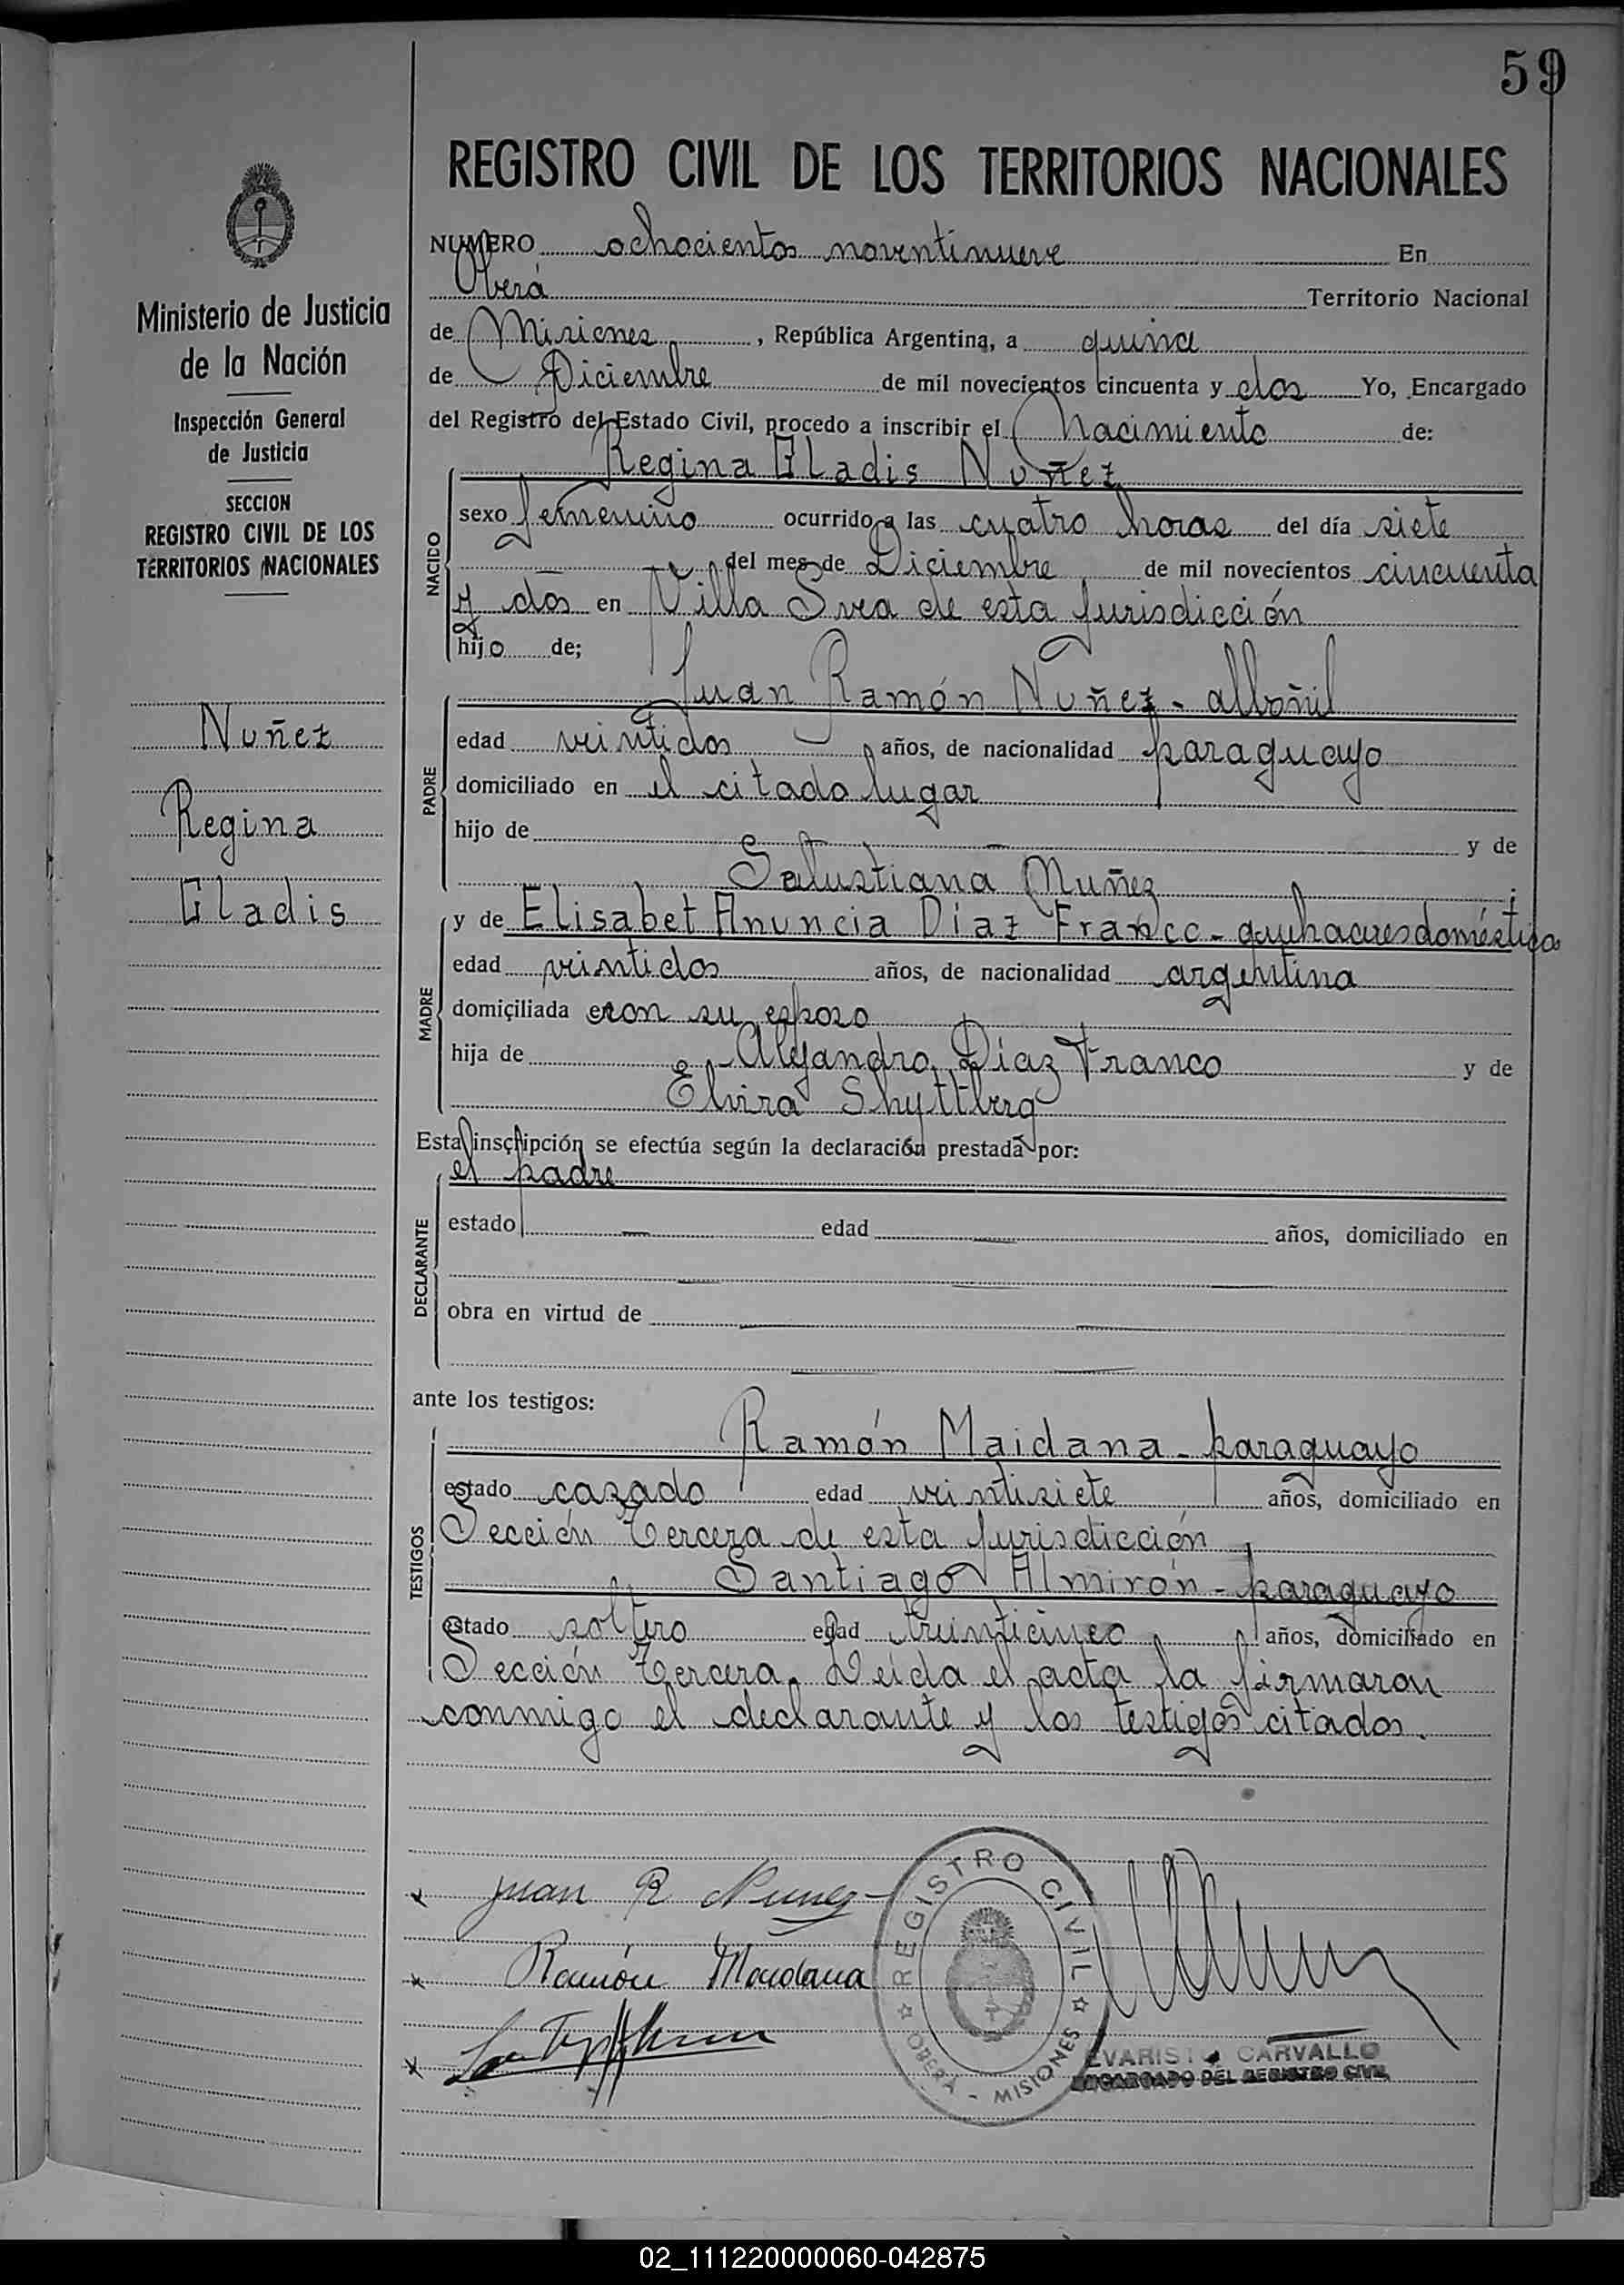 59
REGISTRO CIVIL DE LOS TERRITORIOS NACIONALES
Ministerio de Justicia
de la Nación
Inspección General
de Justicia
SECCION
REGISTRO CIVIL DE LOS
TERRITORIOS NACIONALES
Nuñez
Regina
Gladis
NUMERO ochocientos noventinueve En
Oberá Territorio Nacional
de Misiones, República Argentina, a quince
de Diciembre de mil novecientos cincuenta y dos Yo, Encargado
del Registro del Estado Civil, procedo a inscribir el Nacimiento de:
Regina Gladis Nuñez
NACIDO
sexo femenino ocurrido a las cuatro horas del día siete
del mes de Diciembre de mil novecientos cincuenta
y dos en Villa Svea de esta jurisdicción
hijo de;
Juan Ramón Nuñez - albañil
PADRE
edad veintidos años, de nacionalidad paraguayo
domiciliado en el citado lugar
hijo de — y de
Salustiana Nuñez
MADRE
y de Elisabet Anuncia Diaz Franco - quehaceres domésticos
edad veintidos años, de nacionalidad argentina
domiciliada con su esposo
hija de Alejandro Díaz Franco y de
Elvira Shyttberg
Esta inscripción se efectúa según la declaración prestada por:
el padre
DECLARANTE
estado — edad — años, domiciliado en
obra en virtud de
ante los testigos:
Ramón Maidana - paraguayo
TESTIGOS
estado casado edad veintisiete años, domiciliado en
Sección Tercera de esta jurisdicción
Santiago Almirón - paraguayo
estado soltero edad treinticinco años, domiciliado en
Sección Tercera. Leída el acta la firmaron
conmigo el declarante y los testigos citados.
x Juan R Nunez
x Ramón Maidana
x
REGISTRO CIVIL
OBERÁ - MISIONES
EVARISTO CARVALLO
ENCARGADO DEL REGISTRO CIVIL
02_111220000060-042875